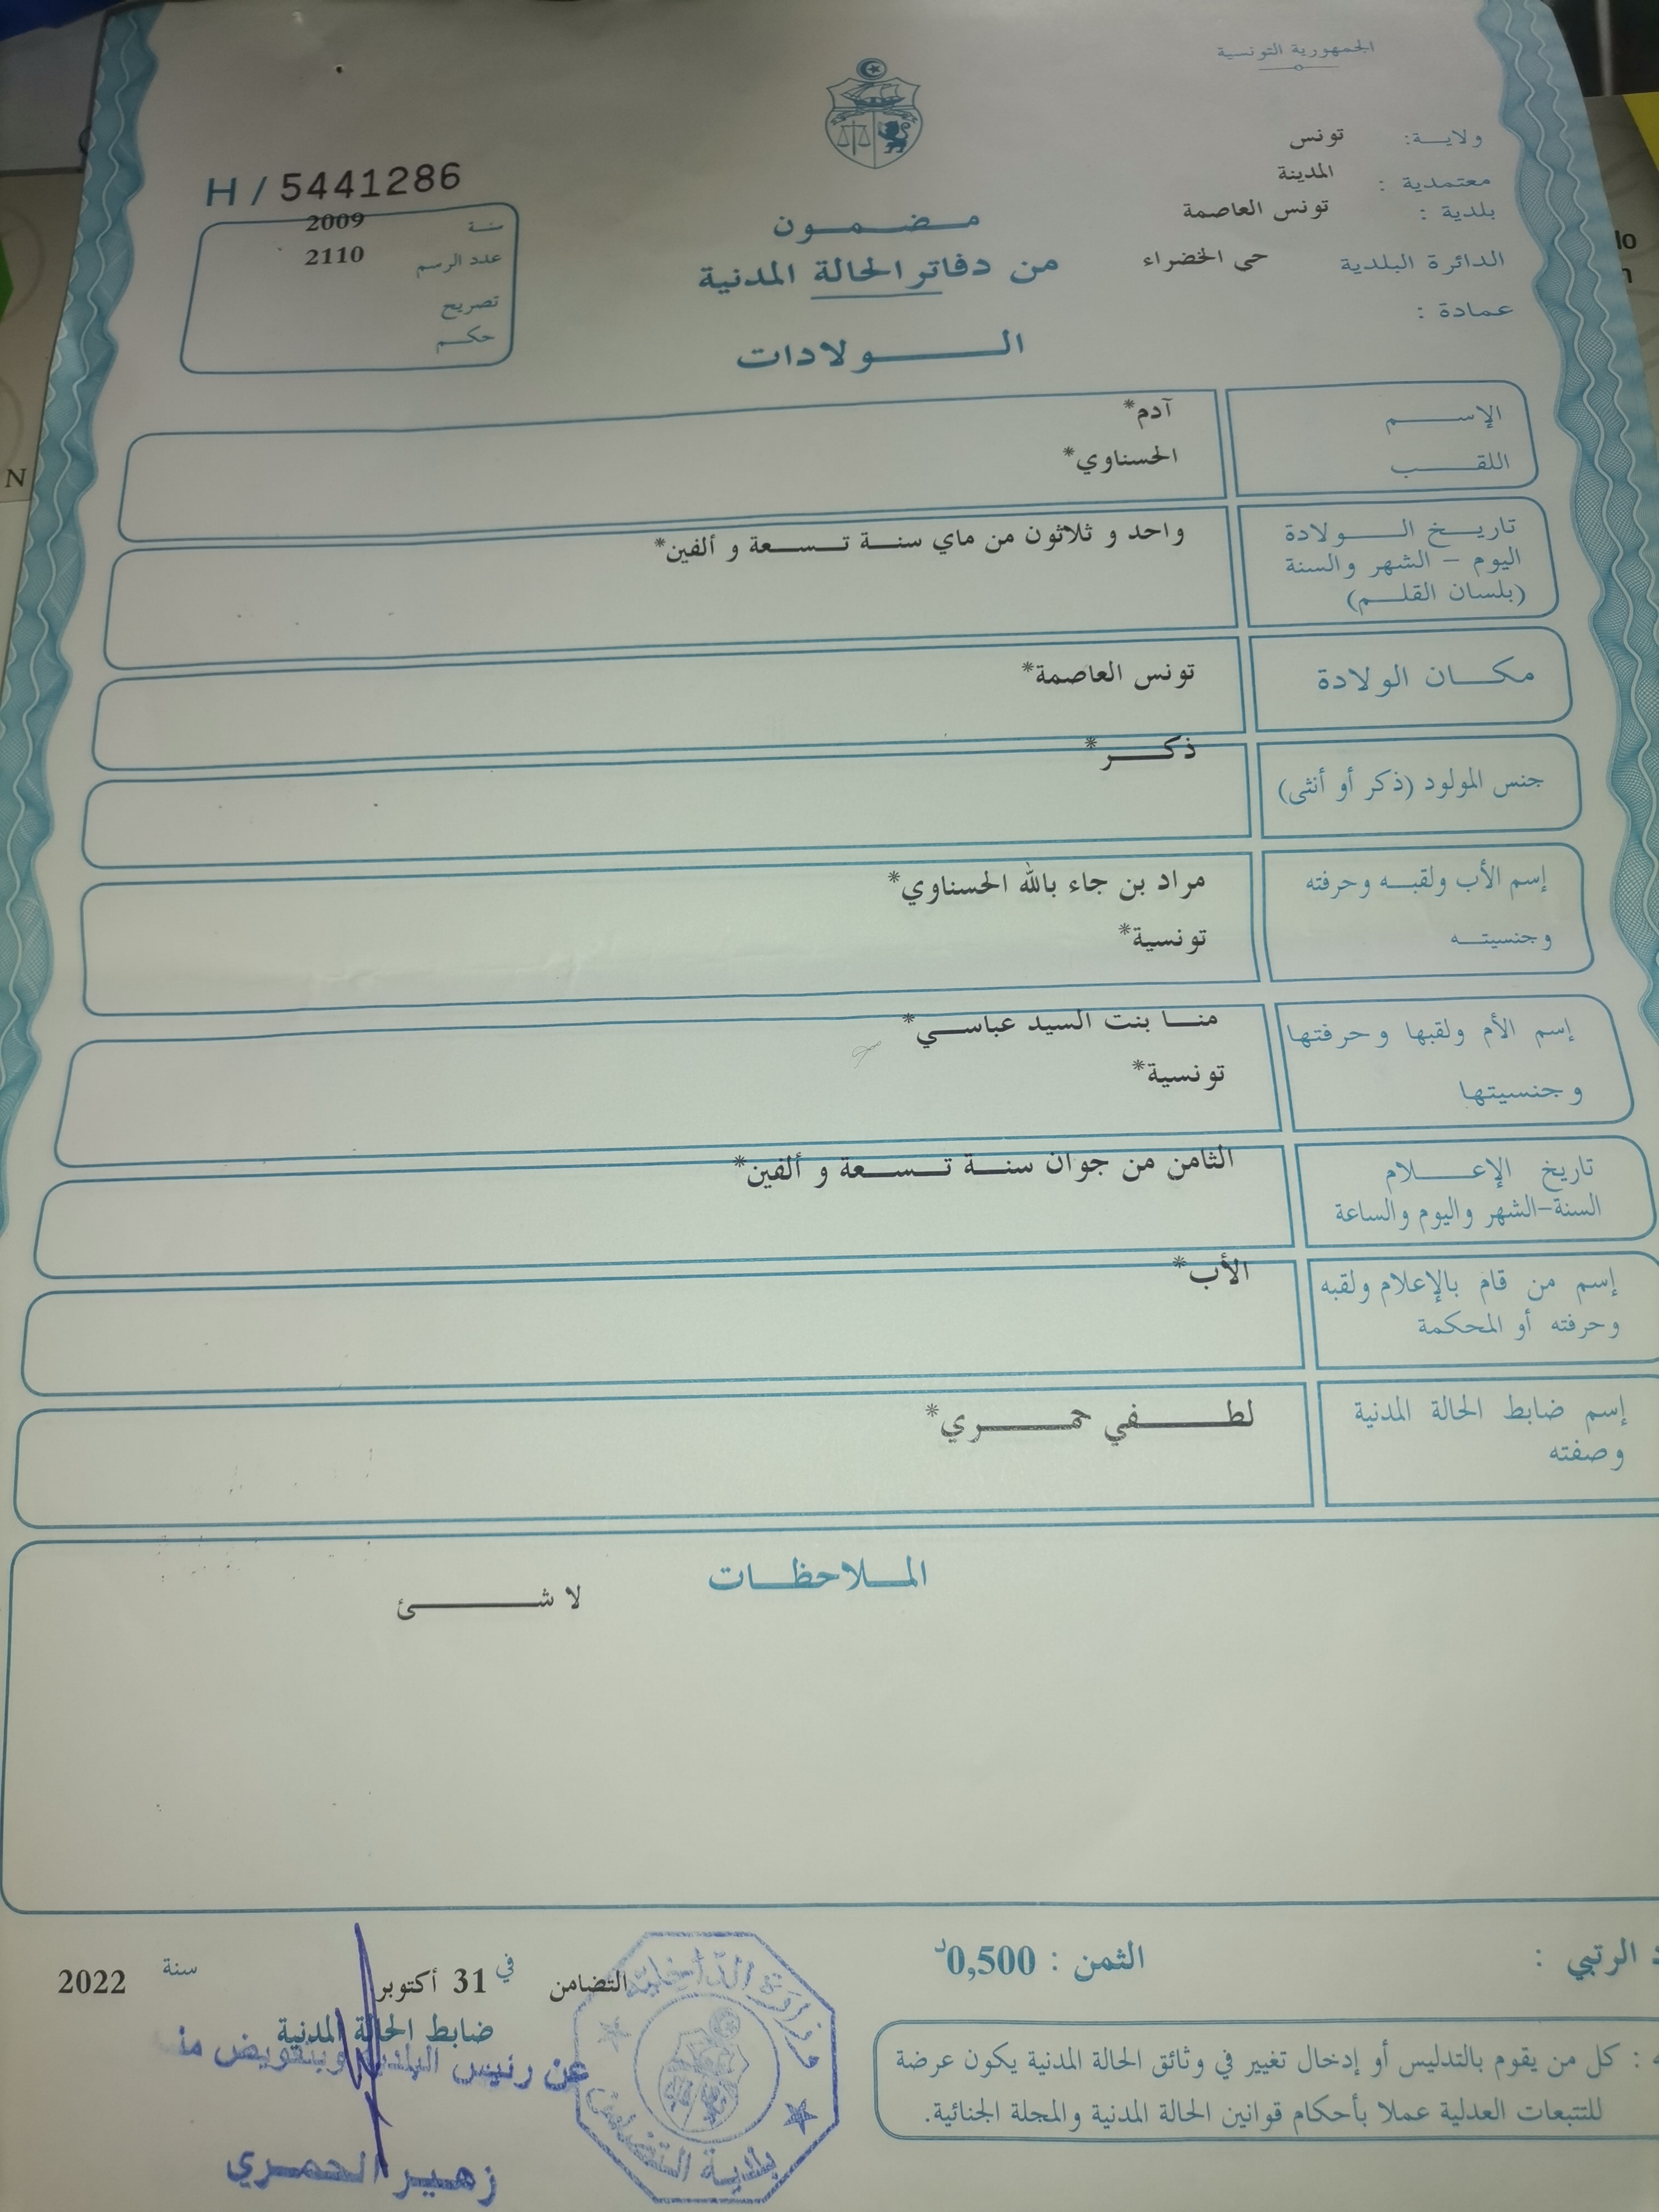 الجمهورية التونسية
ولاية: تونس
معتمدية : المدينة
بلدية : تونس العاصمة
الدائرة البلدية حى الخضراء
عمادة :
H / 5441286
سنة 2009
عدد الرسم 2110
تصريح
حكم
مضمون
من دفاتر الحالة المدنية
الولادات
الإسم آدم*
اللقب الحسناوي*
تاريخ الولادة واحد و ثلاثون من ماي سنة تسعة و ألفين*
اليوم - الشهر والسنة
(بلسان القلم)
مكان الولادة تونس العاصمة*
جنس المولود (ذكر أو أنثى) ذكر*
إسم الأب ولقبه وحرفته مراد بن جاء بالله الحسناوي*
وجنسيته تونسية*
إسم الأم ولقبها وحرفتها منا بنت السيد عباسي*
وجنسيتها تونسية*
تاريخ الإعلام الثامن من جوان سنة تسعة و ألفين*
السنة-الشهر واليوم والساعة
إسم من قام بالإعلام ولقبه الأب*
وحرفته أو المحكمة
إسم ضابط الحالة المدنية لطفي حمري*
وصفته
الملاحظات
لا شئ
الرتبي :
الثمن : 0,500د
التضامن في 31 أكتوبر سنة 2022
ضابط الحالة المدنية
عن رئيس البلدية وبتفويض منه
زهير الحمري
وزارة الداخلية
بلدية التضامن
: كل من يقوم بالتدليس أو إدخال تغيير في وثائق الحالة المدنية يكون عرضة
للتتبعات العدلية عملا بأحكام قوانين الحالة المدنية والمجلة الجنائية.